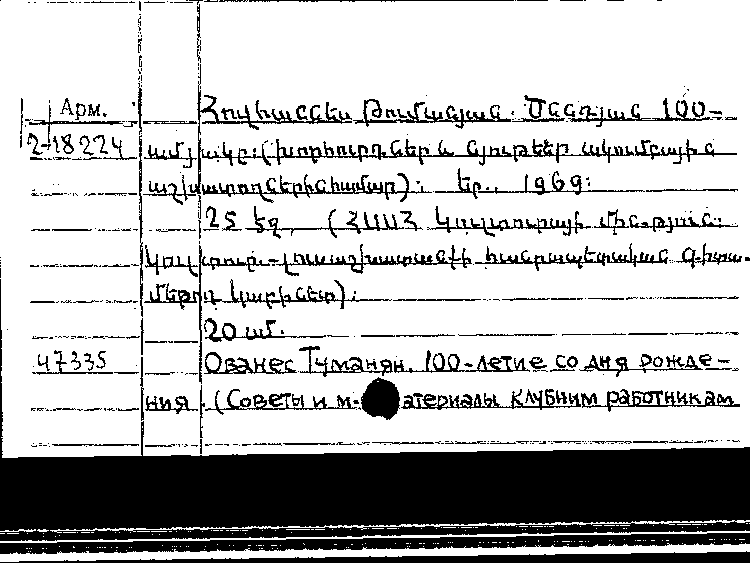 Арм. Հովհաննես Թումանյան. Ծննդյան 100-
2-18224 ամյակը։ (խորհուրդներ և նյութեր ակումբային
աշխատողներին համար)։ Եր., 1969։
25 էջ, (ՀՍՍՀ Կուլտուրայի մին-թյուն։
Կուլտուր-լուսաշխատանքի հանրապետական գիտա-
մեթոդ կաբինետ)։
20 սմ.
47335 Ованес Туманян. 100-летие со дня рожде-
ния. (Советы и м-атериалы клубним работникам